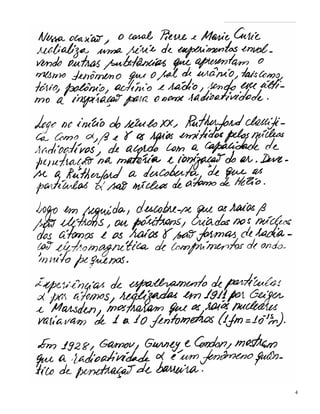 Nessa ocasião, o casal Pierre e Marie Curie
realiza uma série de experimentos envol-
vendo outras substâncias que apresentam o
mesmo fenômeno que o sal de urânio, tais como,
tório, polônio, actínio e rádio, sendo esse últi-
mo a inspiração para o nome radioatividade.
Logo no início do século XX, Rutherford classifi-
ca como α, β e γ os raios emitidos pelos núcleos
radioativos, de acordo com a capacidade de
penetração na matéria e ionização do ar. Deve-
se a Rutherford a descoberta, de que as
partículas α são núcleos de átomo de Hélio.
Logo em seguida, descobre-se que os raios β
são elétrons, ou pósitrons, criados nos núcleos
dos átomos e os raios γ são formas de radia-
ção eletromagnética de comprimentos de onda
muito pequenos.
Experiências de espalhamento de partículas
α por átomos, realizadas em 1911 por Geiger
e Marsden, mostraram que os raios nucleares
variavam de 1 a 10 fentometros (1fm = 10⁻¹⁵m).
Em 1928, Gamow, Gurney e Condon, mostram
que a radioatividade α é um fenômeno quân-
tico de penetração de barreira.
4